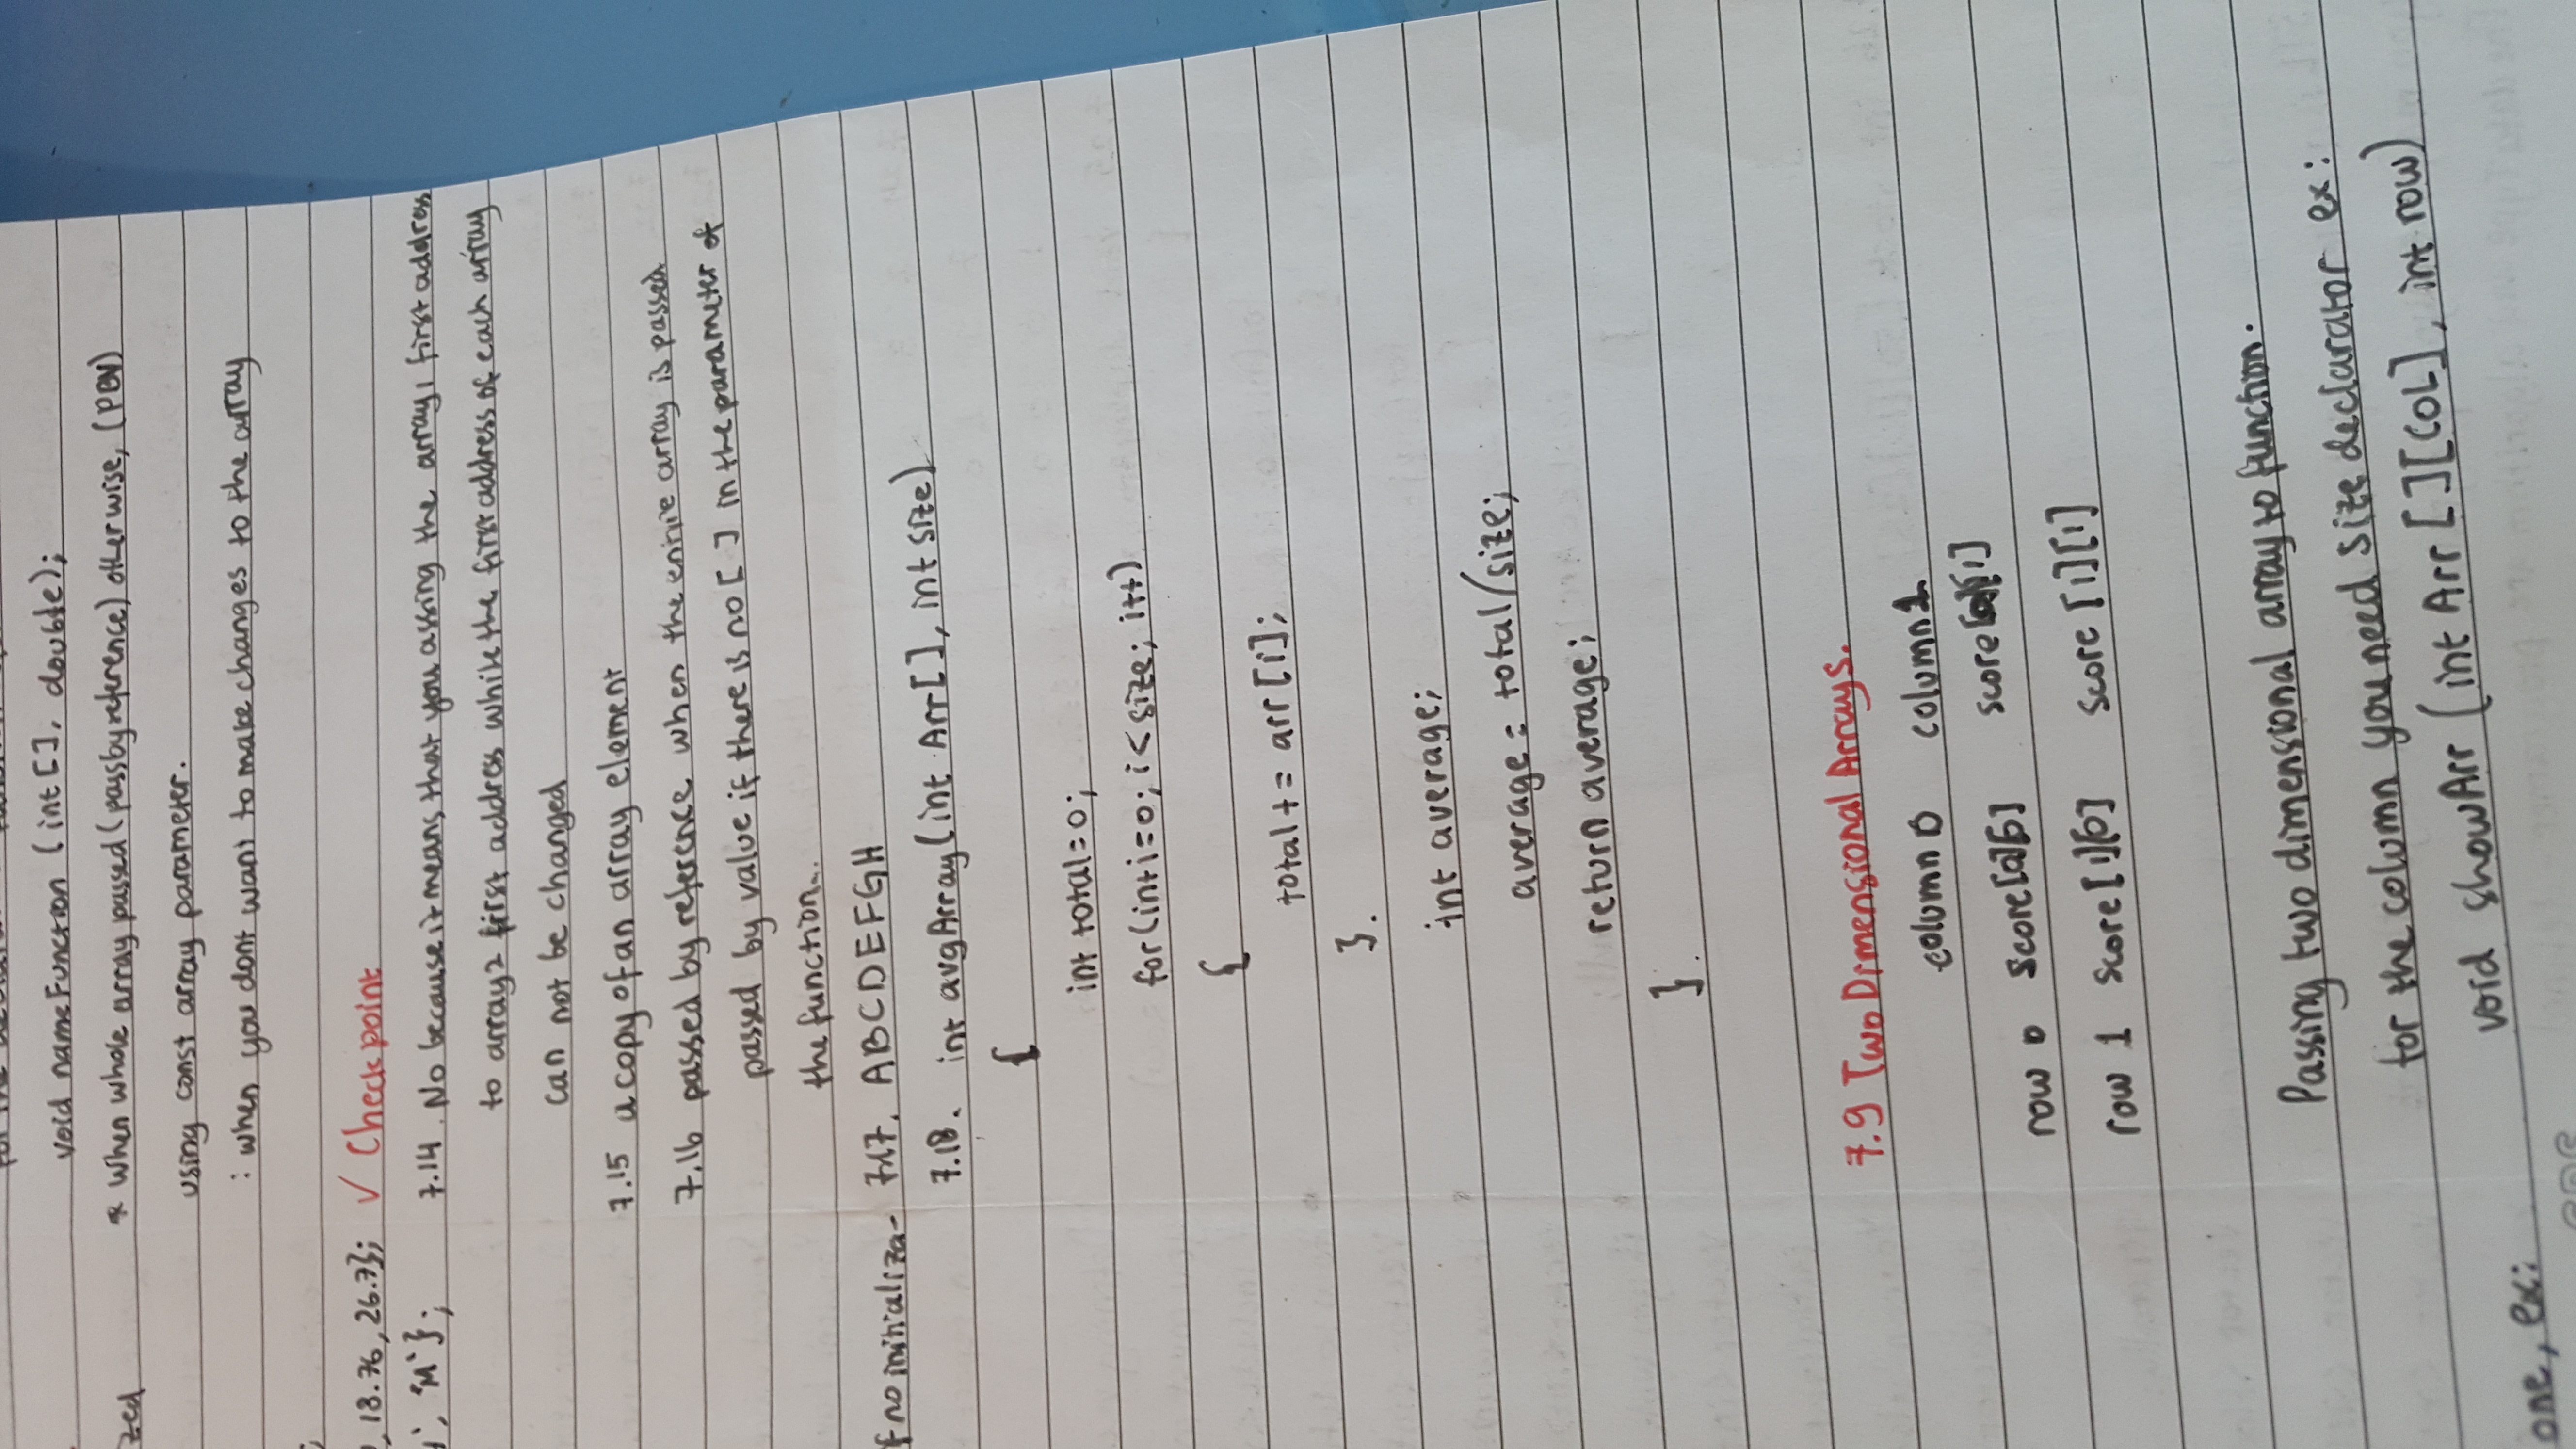 void nameFunction (int [], double);
zed
* When whole array passed (pass by reference) otherwise, (PBV)
using const array parameter.
: when you dont want to make changes to the array
;
, 18.76, 26.7};
✓ Check point
', 'M'};
7.14. No because it means that you assing the array1 first address
to array2 first address while the first address of each array
can not be changed
7.15 a copy of an array element
7.16 passed by reference when the entire array is passed
passed by value if there is no [ ] in the parameter of
the function..
f no initializa-
7.17. ABCDEFGH
7.18. int avgArray (int Arr[], int size)
{
int total=0;
for(int i=0; i<size; i++)
{
total += arr[i];
}.
int average;
average = total/size;
return average;
}.
7.9 Two Dimensional Arrays.
column 0 column 1
row 0 score[0][0] score[0][1]
row 1 score[1][0] score [1][1]
Passing two dimensional array to function.
for the column you need size declarator ex:
void showArr (int Arr [][COL], int row)
one, ex: